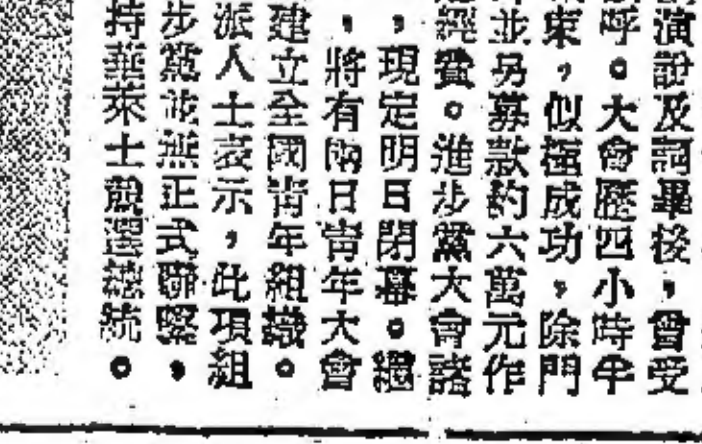 演說及詞畢後，曾受
呼。大會歷四小時半
束，似極成功，除門
並另募款約六萬元作
經費。進步黨大會諸
，現定明日閉幕。繼
，將有兩日青年大會
建立全國青年組織。
派人士表示，此項組
步黨並無正式聯繫，
持華萊士競選總統。